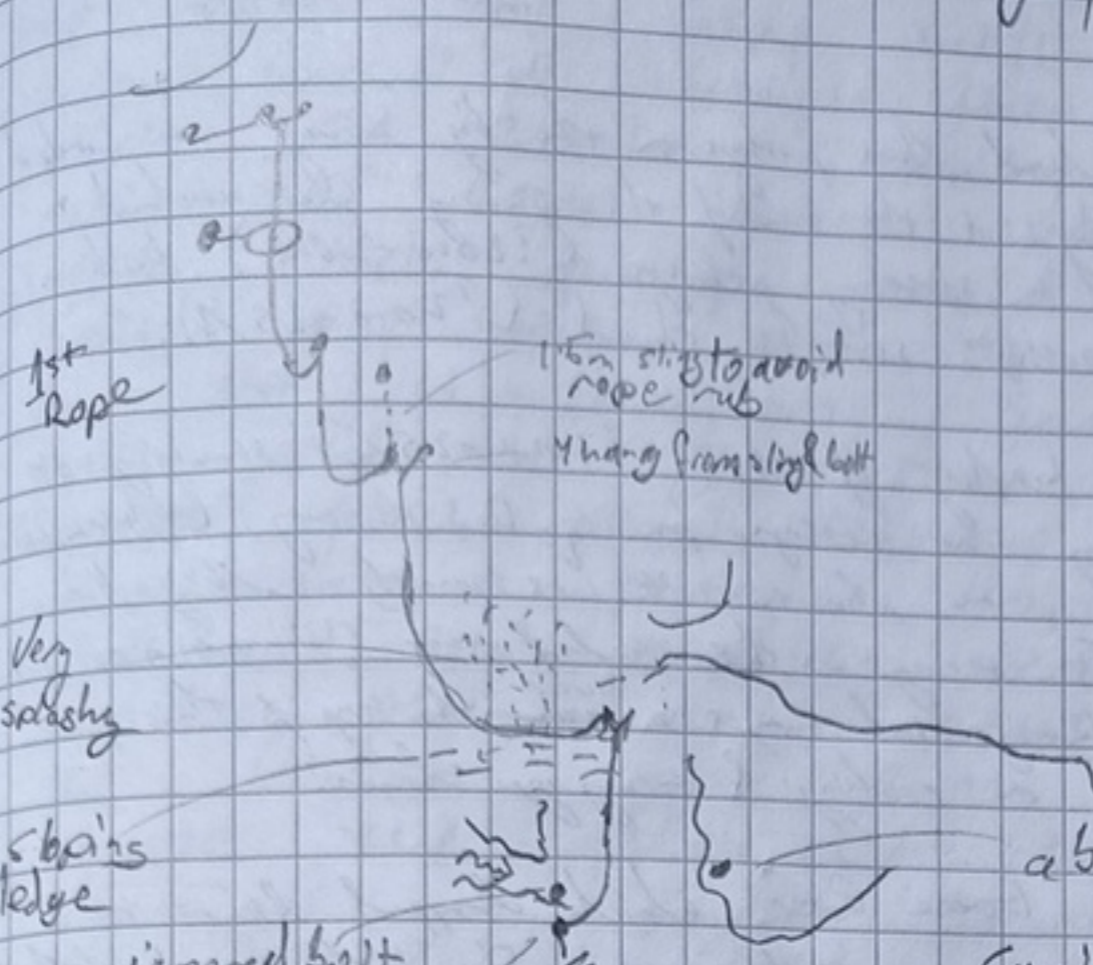 1st
Rope
1.5m slings to avoid
rope rub
Y hang from sling & bolt
Very
splashy
ledge
bolt